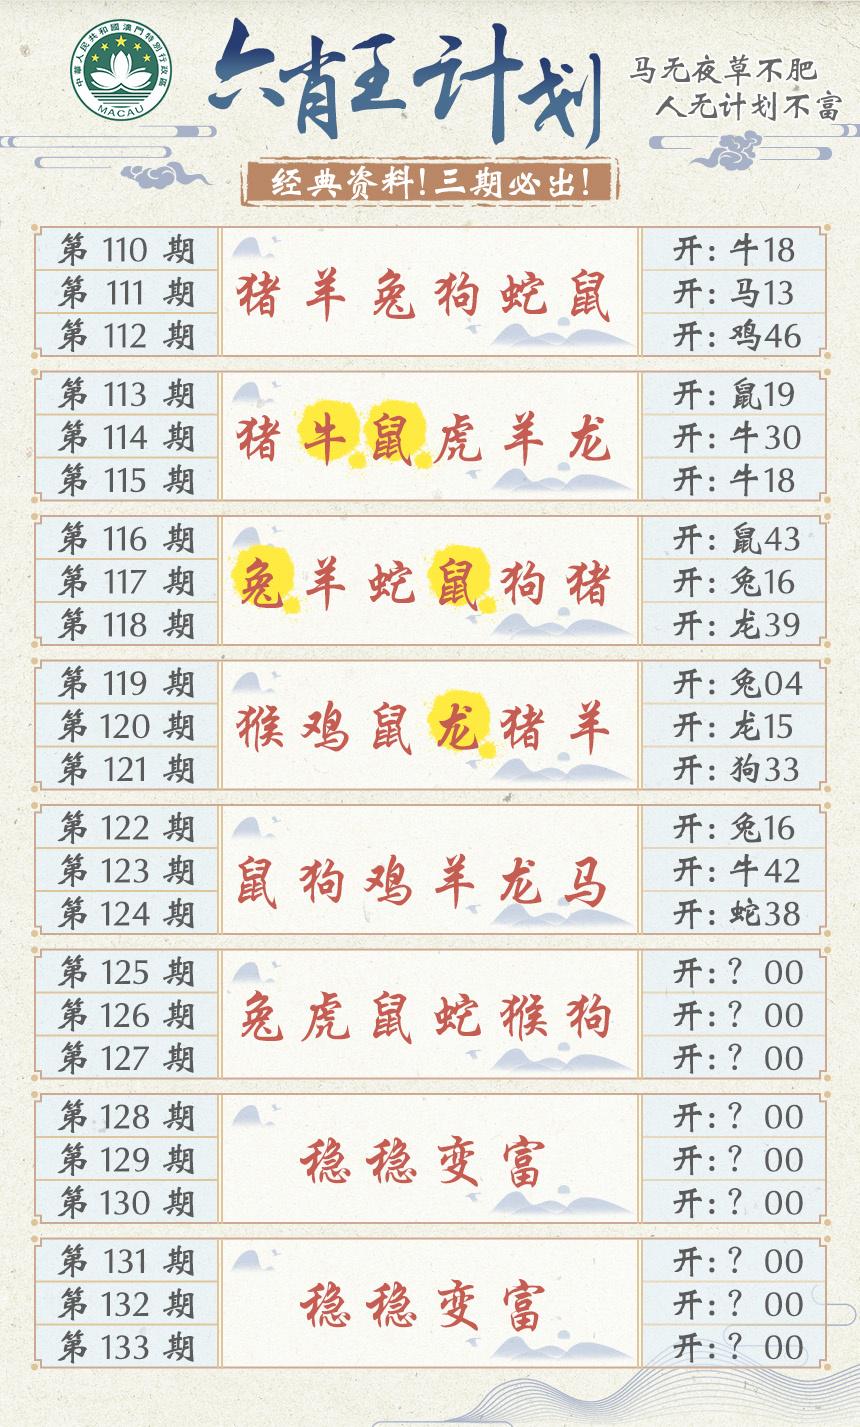 中華人民共和國澳門特別行政區
MACAU
六肖王计划
马无夜草不肥
人无计划不富
经典资料!三期必出!
第 110 期
第 111 期
第 112 期
猪 羊 兔 狗 蛇 鼠
开: 牛18
开: 马13
开: 鸡46
第 113 期
第 114 期
第 115 期
猪 牛 鼠 虎 羊 龙
开: 鼠19
开: 牛30
开: 牛18
第 116 期
第 117 期
第 118 期
兔 羊 蛇 鼠 狗 猪
开: 鼠43
开: 兔16
开: 龙39
第 119 期
第 120 期
第 121 期
猴 鸡 鼠 龙 猪 羊
开: 兔04
开: 龙15
开: 狗33
第 122 期
第 123 期
第 124 期
鼠 狗 鸡 羊 龙 马
开: 兔16
开: 牛42
开: 蛇38
第 125 期
第 126 期
第 127 期
兔 虎 鼠 蛇 猴 狗
开: ? 00
开: ? 00
开: ? 00
第 128 期
第 129 期
第 130 期
稳 稳 变 富
开: ? 00
开: ? 00
开: ? 00
第 131 期
第 132 期
第 133 期
稳 稳 变 富
开: ? 00
开: ? 00
开: ? 00